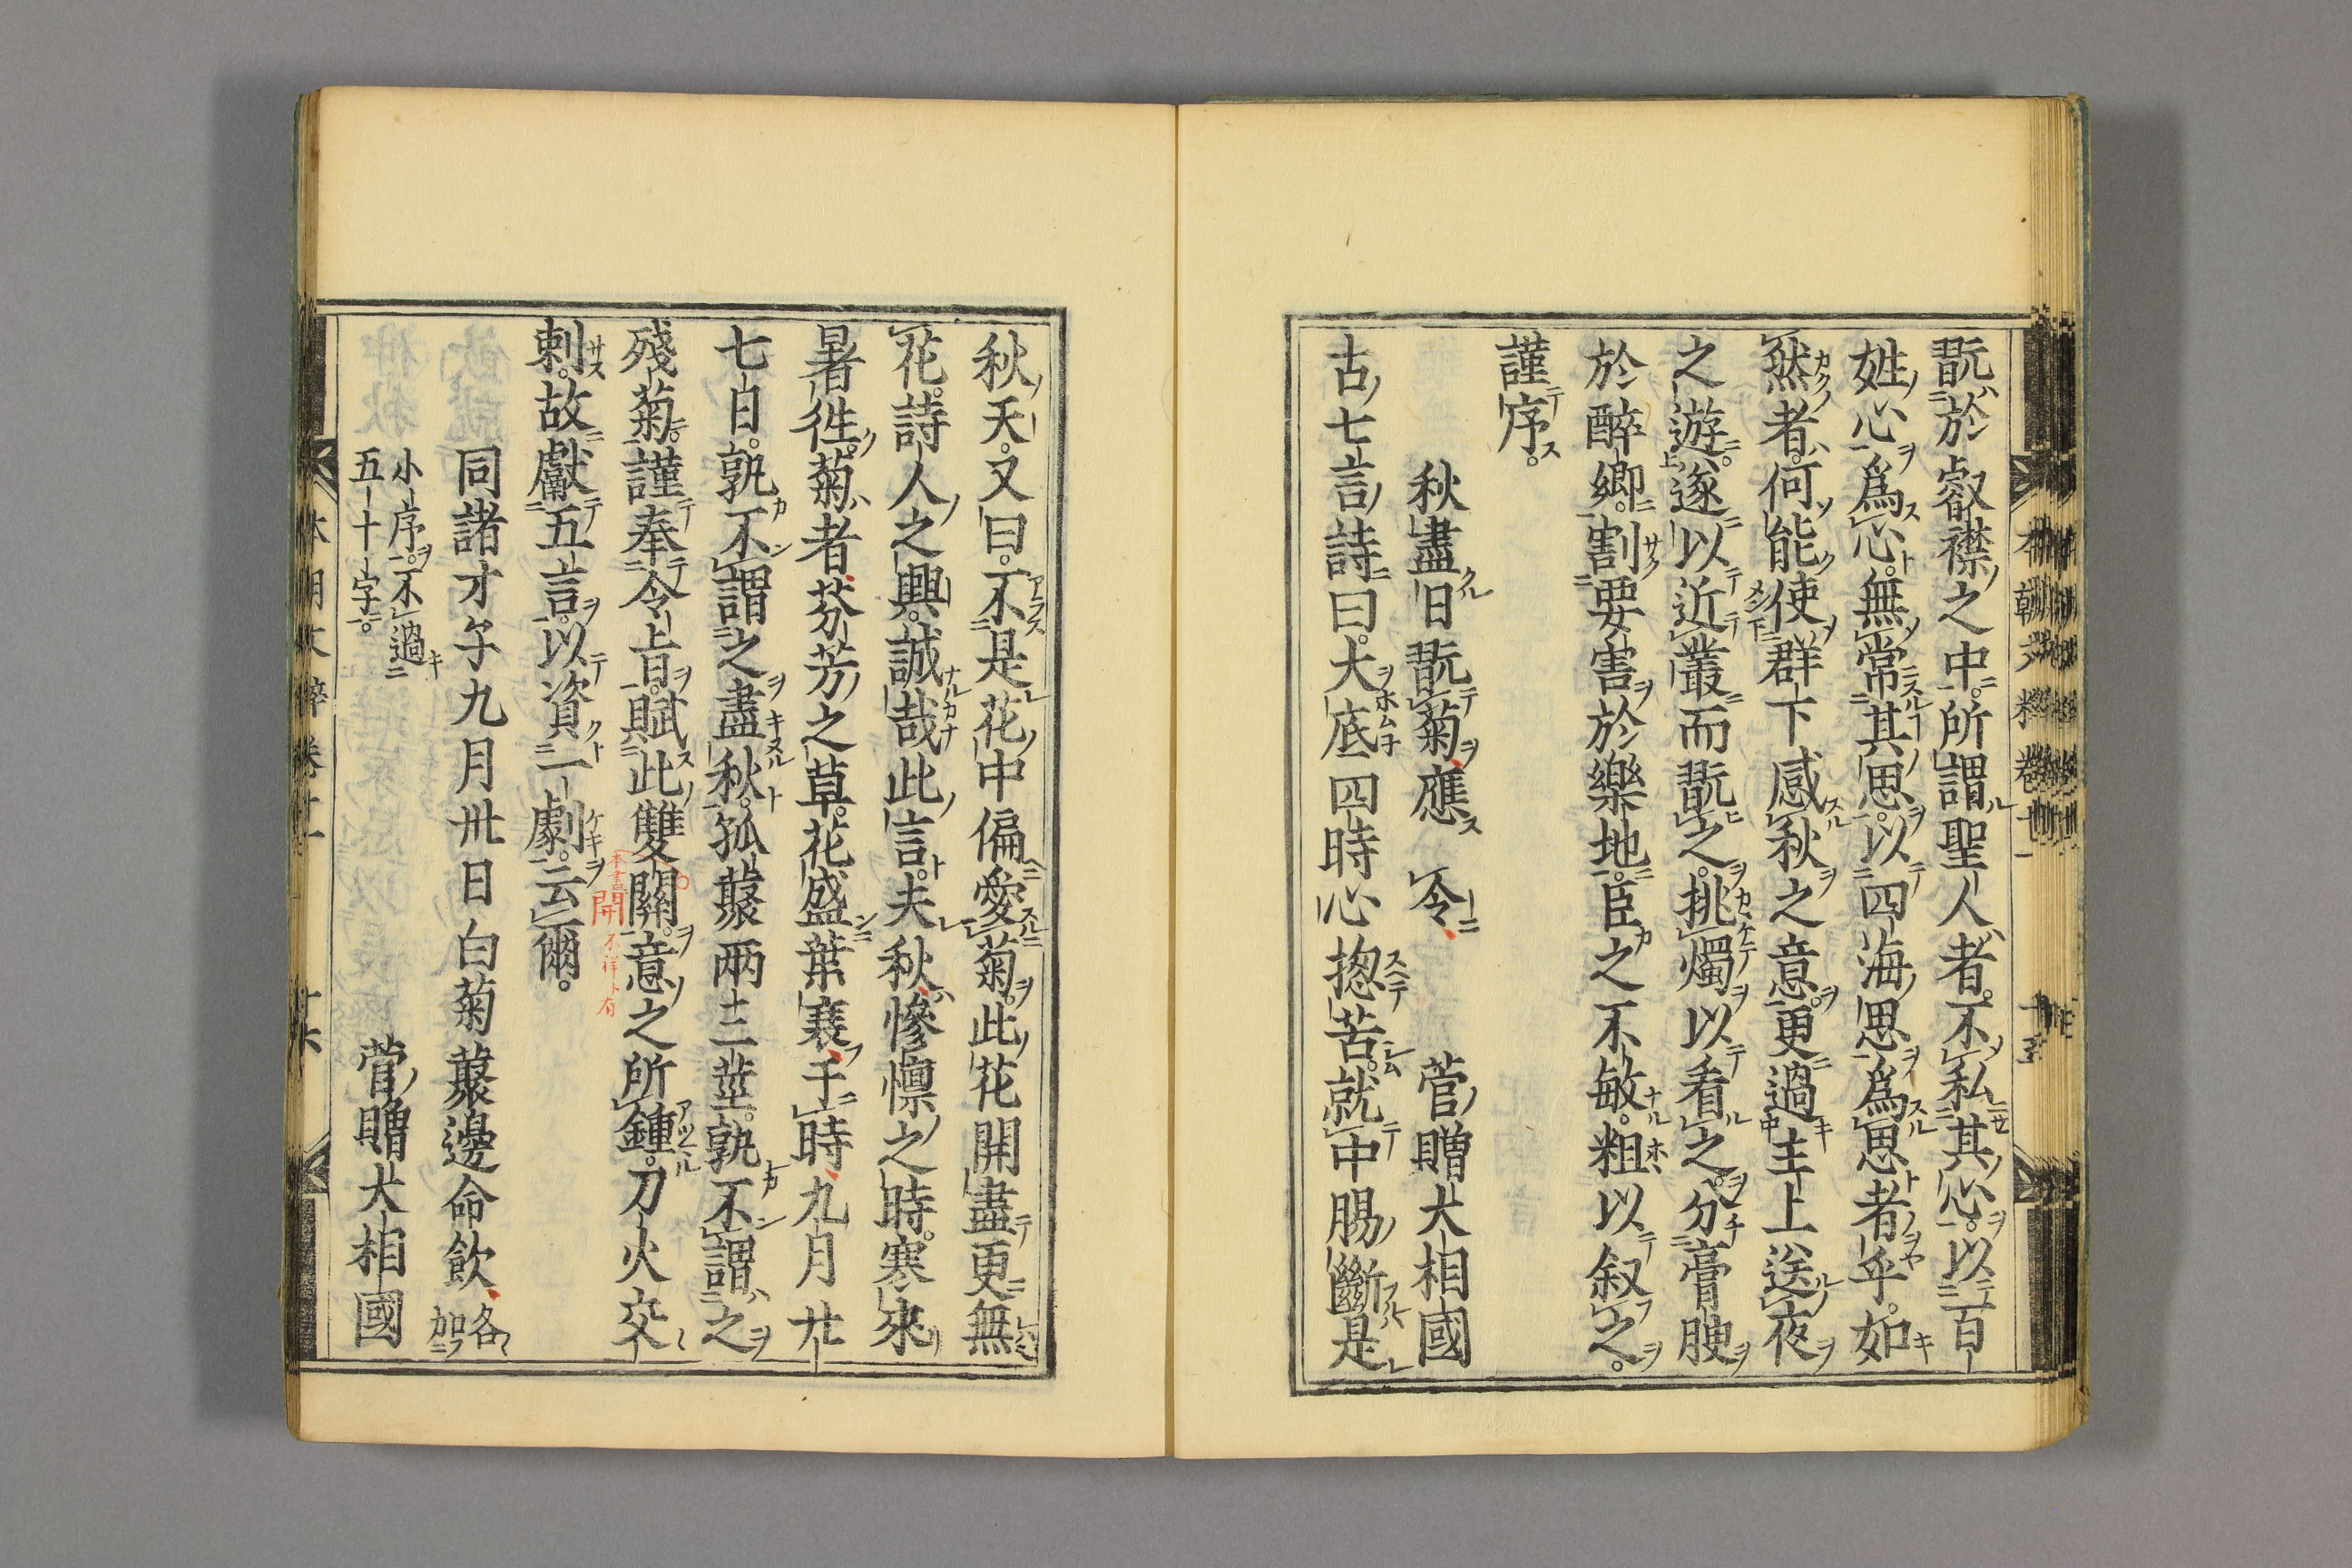 翫於叡襟之中。所謂聖人者。不私其心。以百
姓心爲心。無常其思。以四海思爲思者乎。如
然者。何能使群下感秋之意。更過主上送夜
之遊。遂以近叢而翫之。挑燭以看之。分膏腴
於醉鄉。割要害於樂地。臣之不敏。粗以叙之。
謹序。
秋盡日翫菊應 令 菅贈大相國
古七言詩曰。大底四時心揔苦。就中腸斷是
秋天。又曰。不是花中偏愛菊。此花開盡更無
花。詩人之興。誠哉此言。夫秋慘懍之時。寒來
暑徃。菊者芬芳之草。花盛葉衰。于時九月廿
七日。孰不謂之盡秋。孤藂兩三莖。孰不謂之
殘菊。謹奉令旨。賦此雙關。意之所鍾。刀火交
刺。故獻五言。以資一劇。云爾。
本書
開
不祥ト有
同諸才子九月卅日白菊藂邊命飲 各加
小序。不過
五十字。
菅贈大相國
本朝文粹卷十一
十五